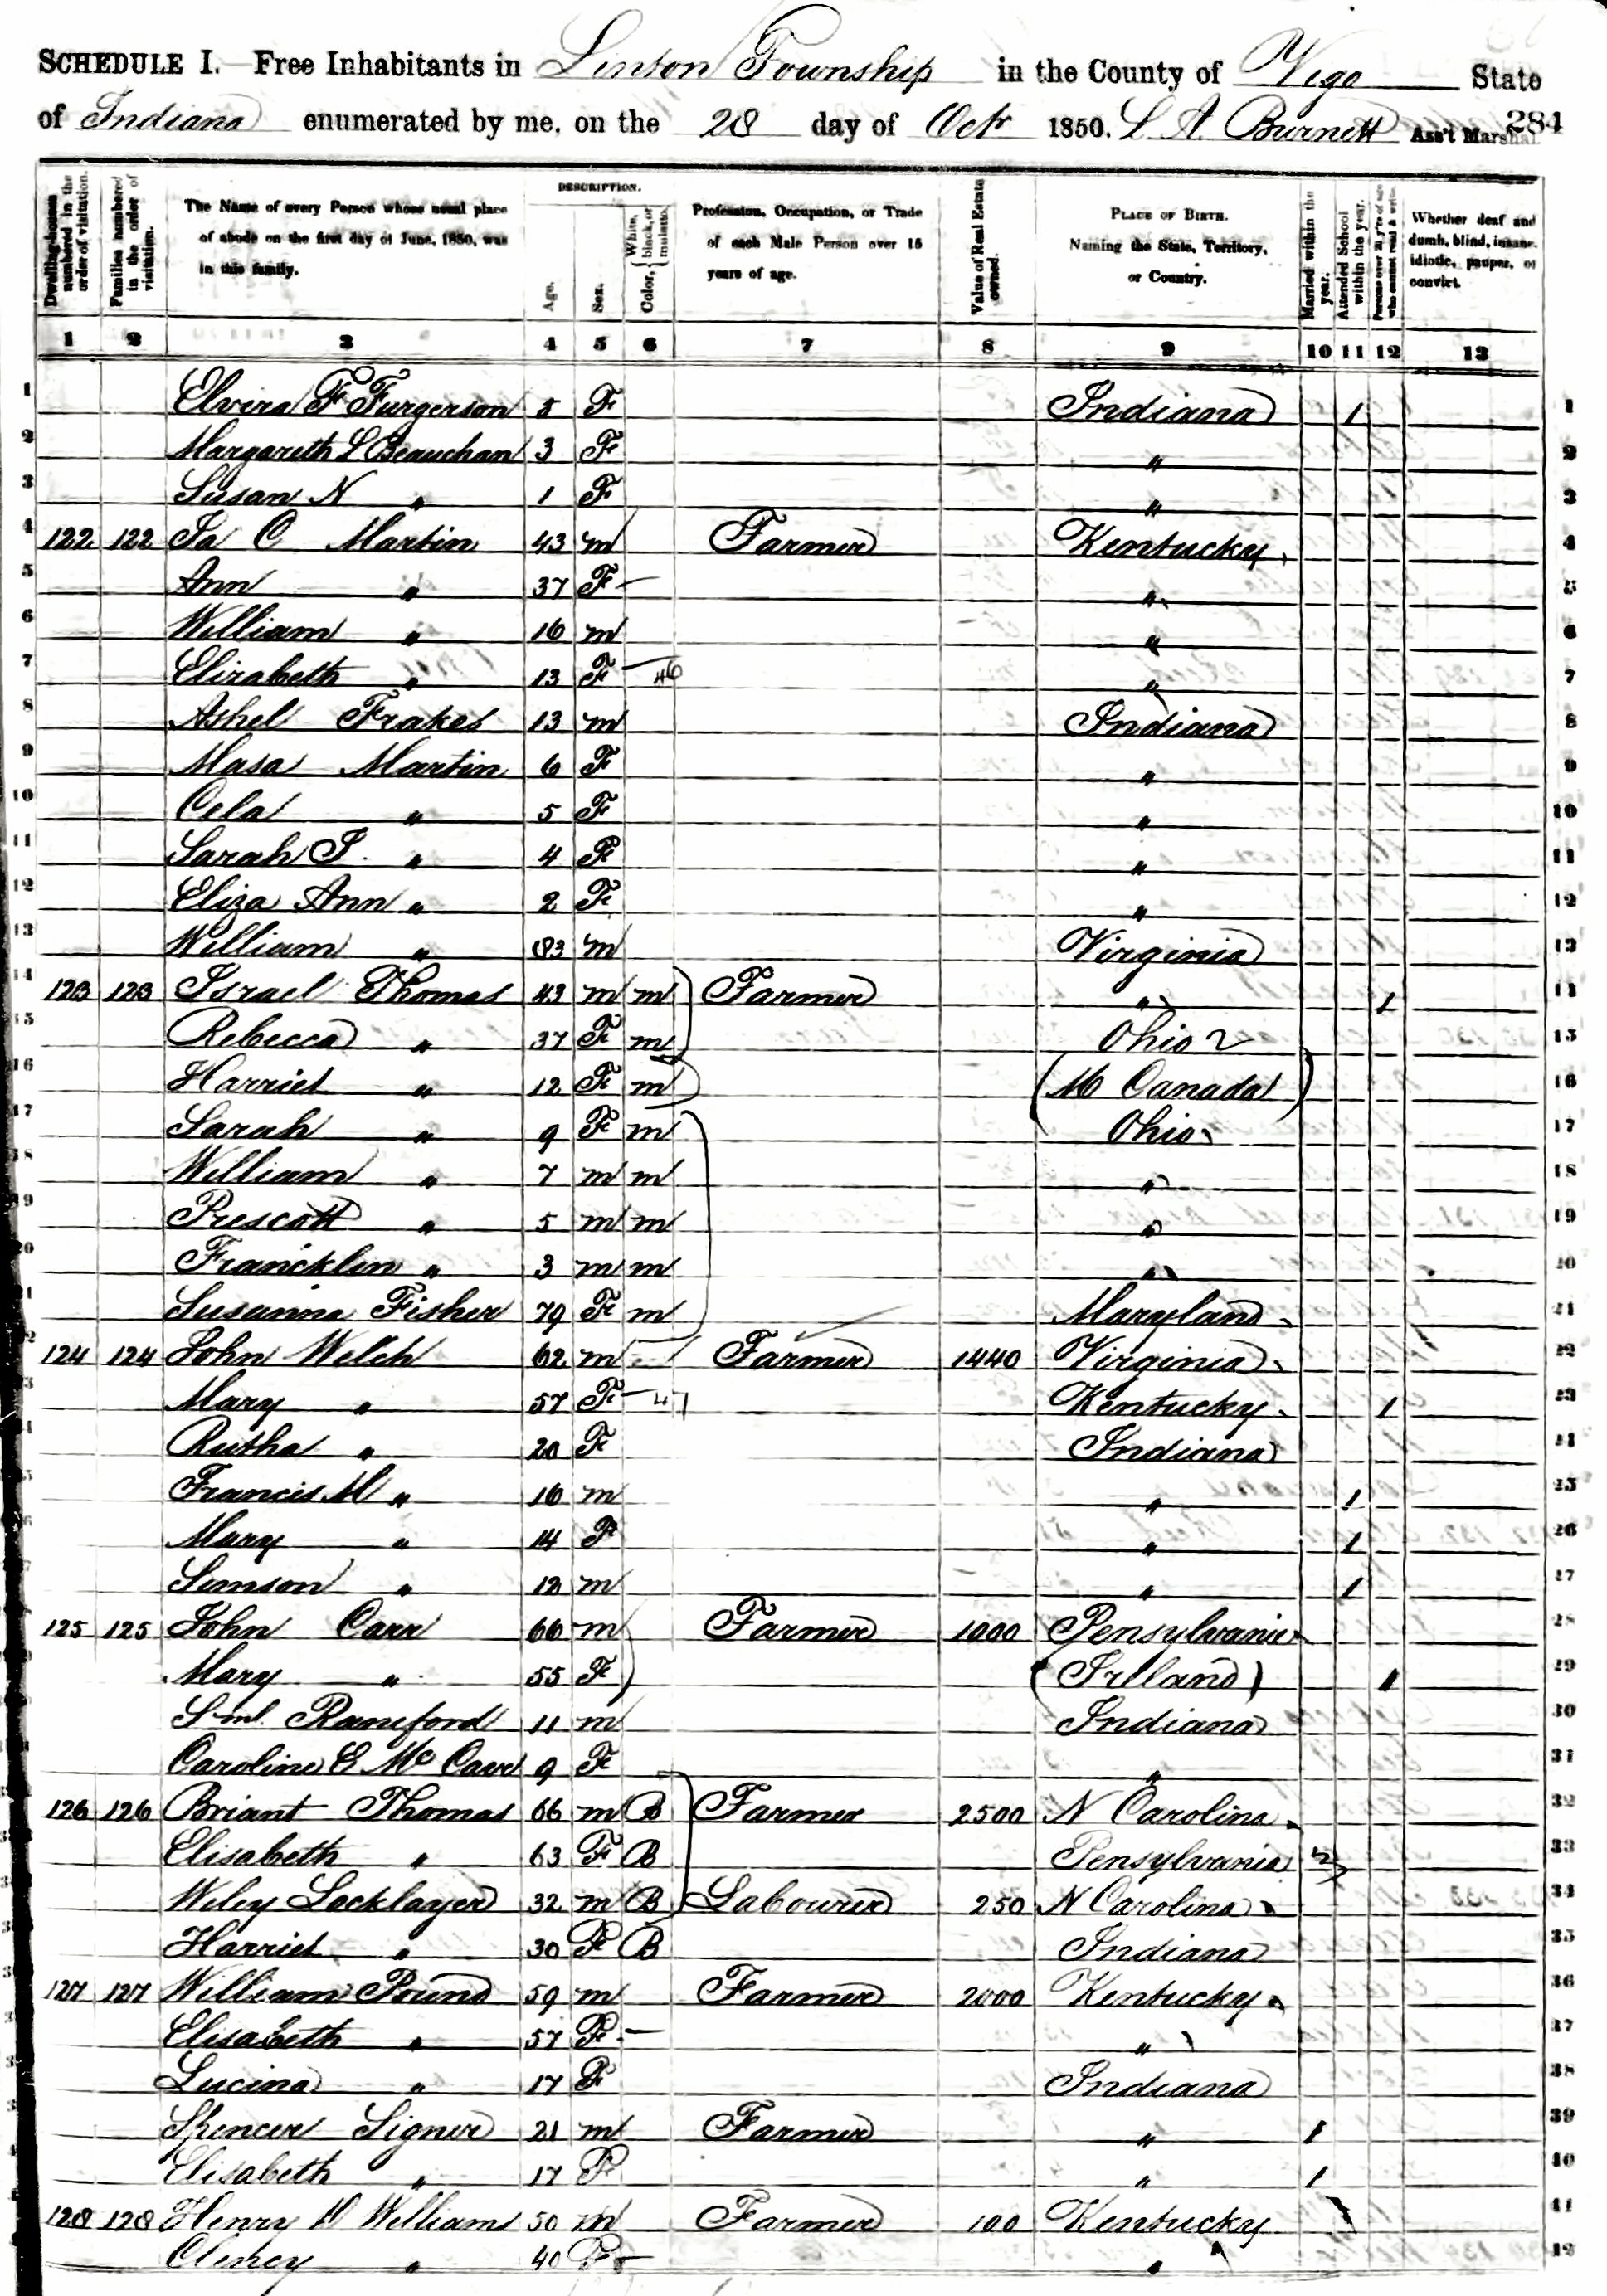 SCHEDULE I. Free Inhabitants in Linton Township in the County of Vigo State
of Indiana enumerated by me, on the 28 day of Oct 1850. L A Burnett Ass't Marshal. 284
DESCRIPTION.
Dwelling-houses numbered in the order of visitation.
Families numbered in the order of visitation.
The Name of every Person whose usual place of abode on the first day of June, 1850, was in this family.
Age.
Sex.
Color, { White, black, or mulatto.
Profession, Occupation, or Trade of each Male Person over 15 years of age.
Value of Real Estate owned.
PLACE OF BIRTH. Naming the State, Territory, or Country.
Married within the year.
Attended School within the year.
Persons over 20 y'rs of age who cannot read & write.
Whether deaf and dumb, blind, insane, idiotic, pauper, or convict.
1 2 3 4 5 6 7 8 9 10 11 12 13
1 Elvira F Furgerson 5 F Indiana 1 1
2 Margareth L Beauchan 3 F " 2
3 Susan N " 1 F " 3
4 122 122 Ja C Martin 43 m Farmer Kentucky 4
5 Ann " 37 F " 5
6 William " 16 m " 6
7 Elizabeth " 13 F 46 " 7
8 Ashel Frakes 13 m Indiana 8
9 Masa Martin 6 F " 9
10 Cela " 5 F " 10
11 Sarah J. " 4 F " 11
12 Eliza Ann " 2 F " 12
13 William " 83 m Virginia 13
14 123 123 Israel Thomas 43 m m Farmer " 1 14
15 Rebecca " 37 F m Ohio 2 15
16 Harriet " 12 F m (M Canada) 16
17 Sarah " 9 F m Ohio 17
18 William " 7 m m " 18
19 Prescott " 5 m m " 19
20 Francklin " 3 m m " 20
21 Susanna Fisher 79 F m Maryland 21
22 124 124 John Welch 62 m Farmer 1440 Virginia 22
23 Mary " 57 F 47 Kentucky 1 23
24 Rutha " 20 F Indiana 24
25 Francis M " 16 m " 1 25
26 Mary " 14 F " 1 26
27 Simson " 12 m " 1 27
28 125 125 John Carr 66 m Farmer 1000 Pensylvania 28
29 Mary " 55 F (Irlland) 1 29
30 Saml. Raneford 11 m Indiana 30
31 Caroline E Mc Carr 9 F " 31
32 126 126 Briant Thomas 66 m B Farmer 2500 N Carolina 32
33 Elisabeth " 63 F B Pensylvania 33
34 Wiley Locklayer 32 m B Labourer 250 N Carolina 34
35 Harriet " 30 F B Indiana 35
36 127 127 William Pound 59 m Farmer 2000 Kentucky 36
37 Elisabeth " 57 F " 37
38 Lucina " 17 F Indiana 38
39 Spencer Signer 21 m Farmer " 1 39
40 Elisabeth " 17 F " 1 40
41 128 128 Henry D Williams 50 m Farmer 100 Kentucky 41
42 " 40 F " 42